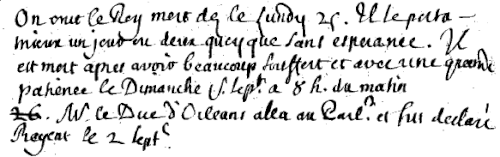 On crut le Roy mort dez le Lundy 25. Il se porta
mieux un jour ou deux quoy que sans esperance. Il
est mort apres avoir beaucoup souffert et avec une grande
patience le Dimanche 1 Sept. a 8 h. du matin
26. Mr le Duc d'Orleans alla au Parl. et fut declaré
Regent le 2 Sept